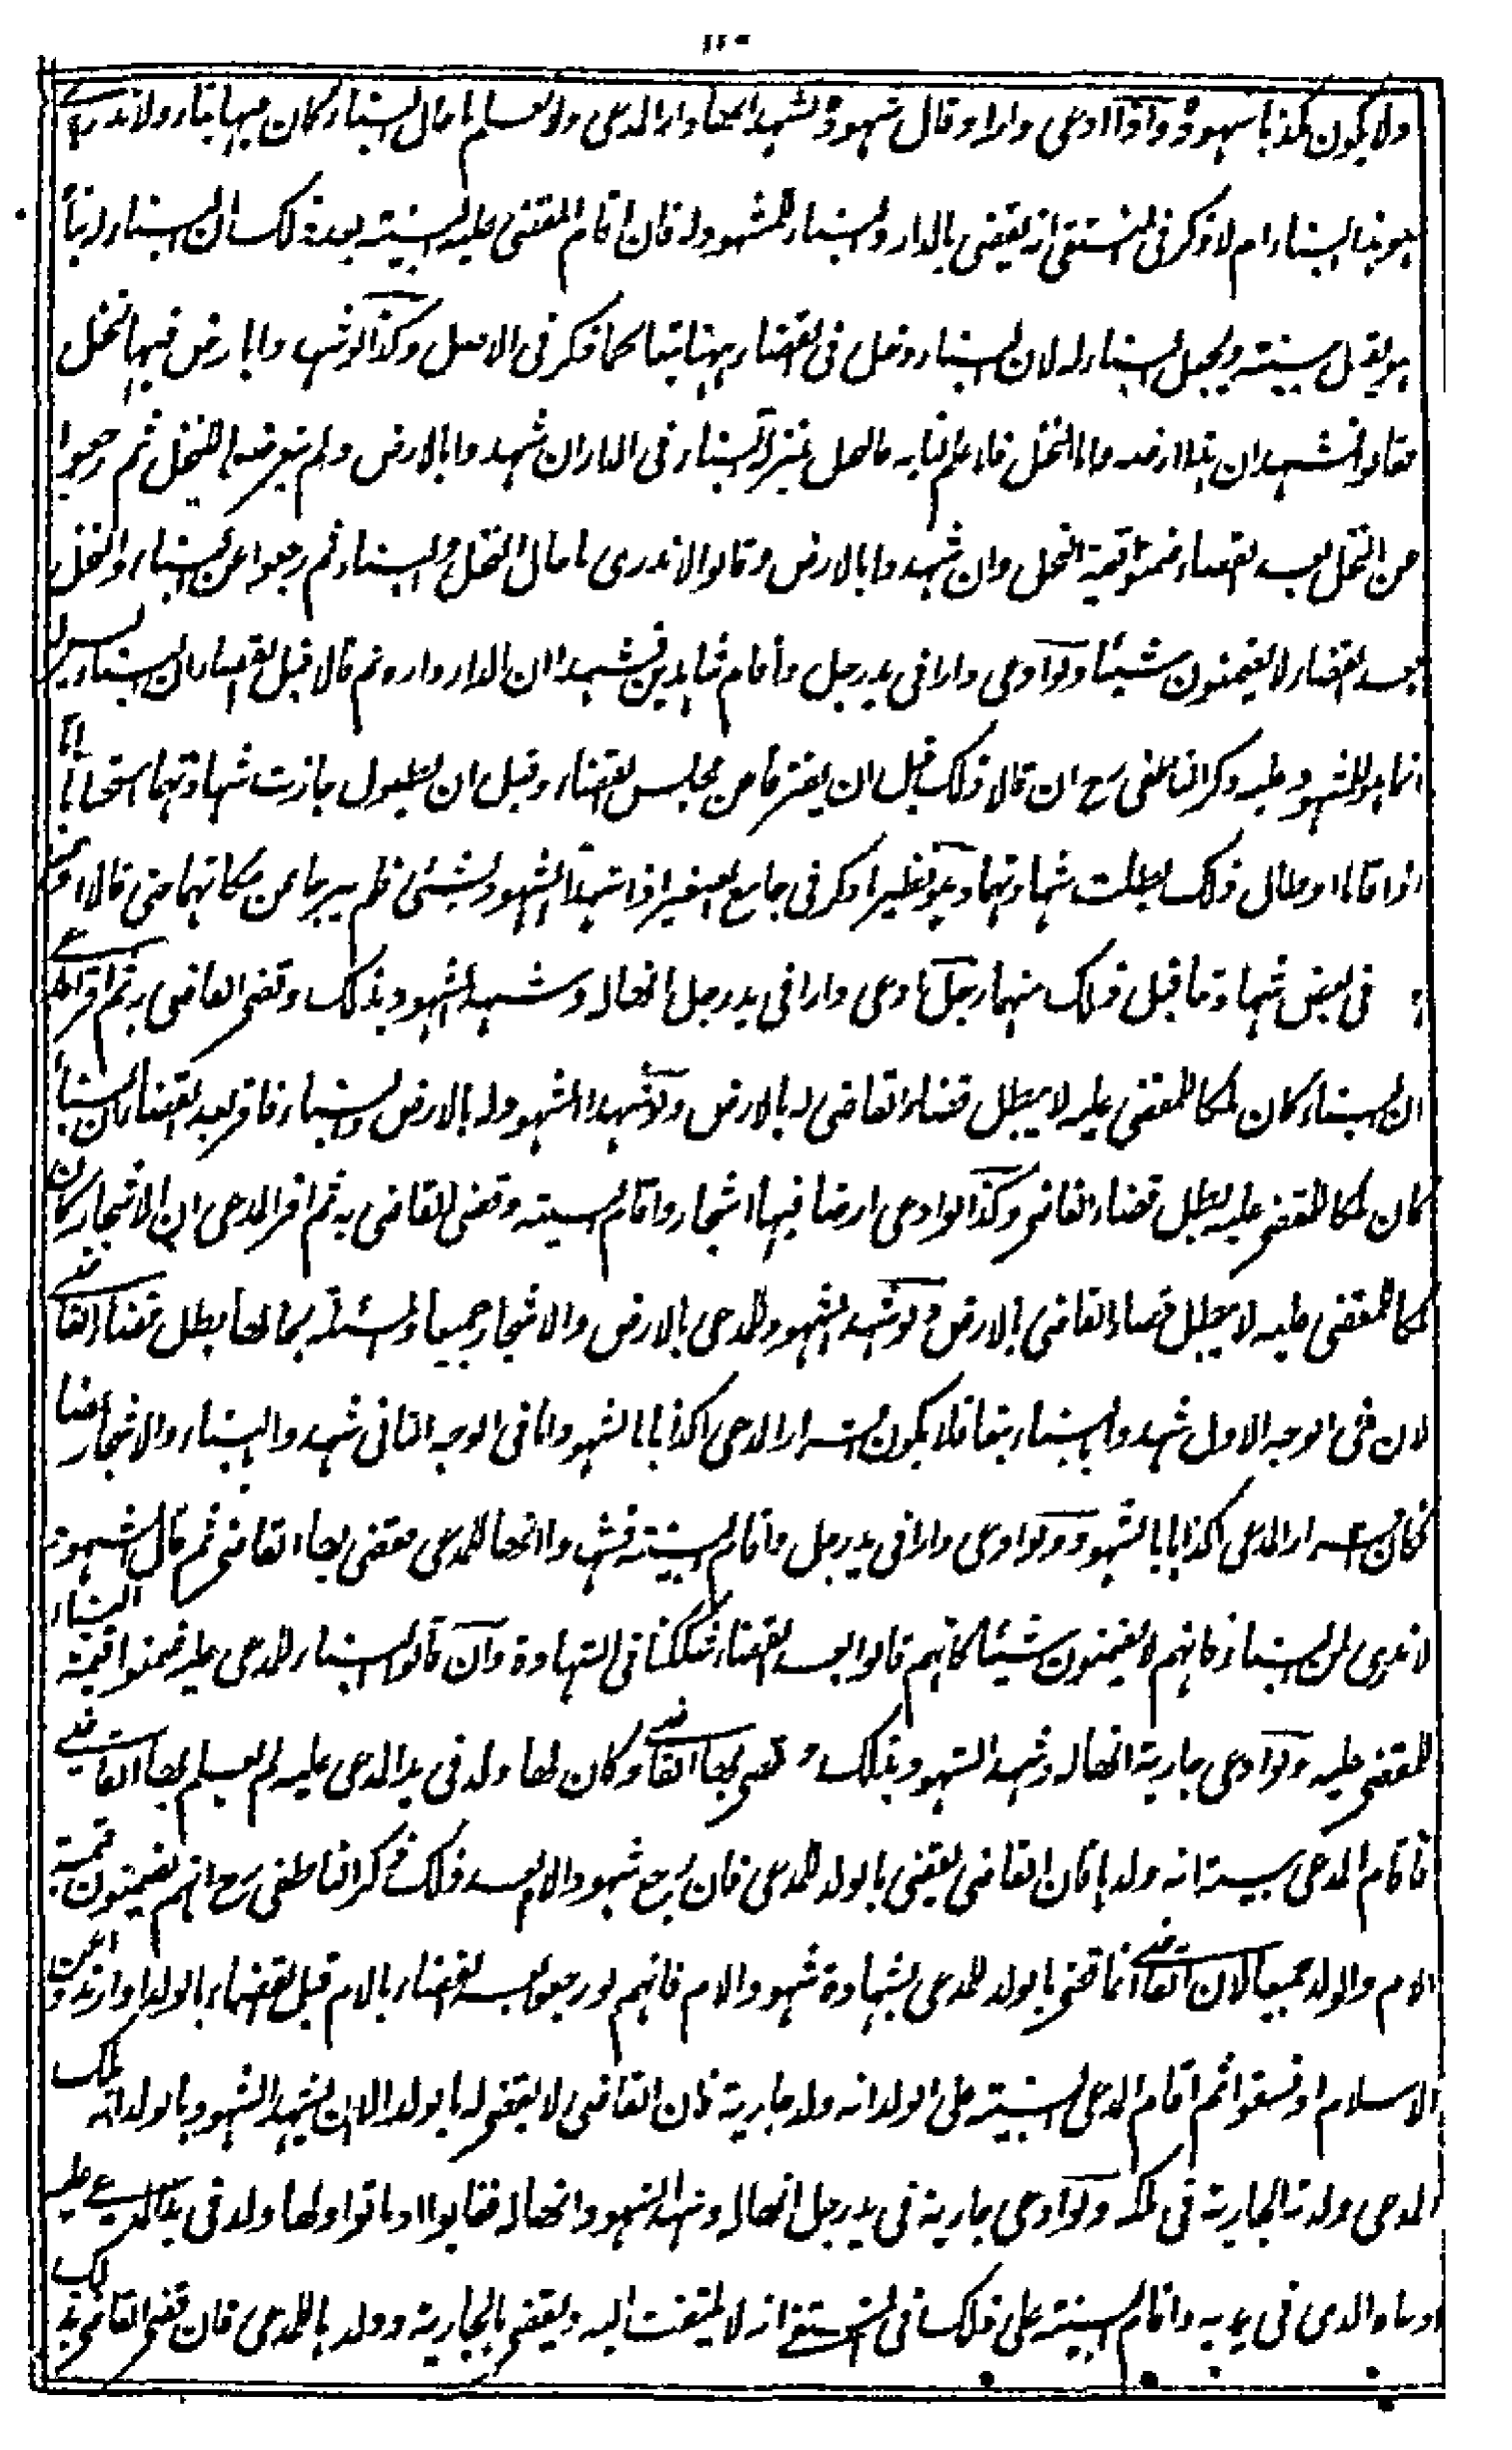 ولا يكون مكذبا شهوده واذا ادعى دارا وقال شهوده نشهد انها دار المدعى ولا نعلم ما حال البناء كان فيها بناء ولا ندرى
هو هذا البناء ام لا ذكر فى المنتقى انه يقضى بالدار والبناء للمشهود له فان اقام المقضى عليه البينة بعد ذلك ان البناء له بناه
هو يقبل بينته ويجعل البناء له لان البناء دخل فى القضاء ههنا تبعا كما ذكر فى الاصل وكذا لو شهدوا بارض فيها نخل
فقالوا نشهد ان هذا ارضه واما النخل فلا علم لنا به فالنخل بمنزلة البناء فى الدار ان شهدوا بالارض ولم يتعرضوا للنخل ثم رجعوا
عن النخل بعد القضاء ضمنوا قيمة النخل وان شهدوا بالارض وقالوا لا ندرى ما حال النخل والبناء ثم رجعوا عن البناء والنخل
بعد القضاء لا يضمنون شيئا ولو ادعى دارا فى يد رجل واقام شاهدين فشهدا ان الدار داره ثم قالا قبل القضاء ان البناء ليس له
انما هو للمشهود عليه ذكر الناطفى رح ان قالا ذلك قبل ان يفترقا عن مجلس القضاء وقبل ان يطول جازت شهادتهما استحسانا
اذا قاما او طال ذلك بطلت شهادتهما وهو نظير ما ذكر فى جامع الصغير اذا شهد الشهود بشئ فلم يبرحا عن مكانهما حتى قالا اوهمنا
فى بعض شهادتنا قبل ذلك منهما رجل ادعى دارا فى يد رجل انها له وشهد الشهود بذلك وقضى القاضى به ثم اقر المدعى
ان البناء كان ملكا للمقضى عليه لا يبطل قضاء القاضى له بالارض ولو شهد الشهود له بالارض والبناء فاقر بعد القضاء ان البناء
كان ملكا للمقضى عليه بطل قضاء القاضى وكذا لو ادعى ارضا فيها اشجار واقام البينة وقضى القاضى به ثم اقر المدعى ان الاشجار كان
ملكا للمقضى عليه لا يبطل قضاء القاضى بالارض ولو شهد الشهود للمدعى بالارض والاشجار جميعا والمسئلة بحالها يبطل قضاء القاضى
لان فى الوجه الاول شهدوا بالبناء تبعا فلا يكون اقرار المدعى اكذابا للشهود اما فى الوجه الثانى شهدوا بالبناء والاشجار نصا
فكان اقرار المدعى اكذابا بالشهود ولو ادعى دارا فى يد رجل واقام البينة فشهدوا انها للمدعى فقضى بها القاضى ثم قال الشهود
لا ندرى لمن البناء فانهم لا يضمنون شيئا كانهم قالوا بعد القضاء شككنا فى الشهادة وان قالوا البناء للمدعى عليه ضمنوا قيمة البناء
للمقضى عليه ولو ادعى جارية انها له وشهد الشهود بذلك وقضى بها القاضى وكان لها ولد فى يد المدعى عليه لم يعلم بها القاضى
فاقام المدعى بينة انه ولدها فان القاضى يقضى بالولد للمدعى فان رجع شهود الام بعد ذلك ذكر الناطفى رح انهم يضمنون قيمة
الام والولد جميعا لان القاضى انما قضى بالولد للمدعى بشهادة شهود الام فانهم لو رجعوا بعد القضاء بالام قبل القضاء بالولد او ارتدوا عن
الاسلام او فسقوا ثم اقام المدعى البينة على الولد انه ولد جارية فان القاضى لا يقضى له بالولد الا ان يشهد الشهود بالولد انه ملك
المدعى ولدته الجارية فى ملكه ولو ادعى جارية فى يد رجل انها له وشهد الشهود انها له فغابوا او ماتوا ولها ولد فى يد المدعى عليه
ادعاه الذى فى يديه واقام البينة على ذلك فى المنتقى انه لا يلتفت اليه ويقضى بالجارية وولدها للمدعى فان قضى القاضى بذلك